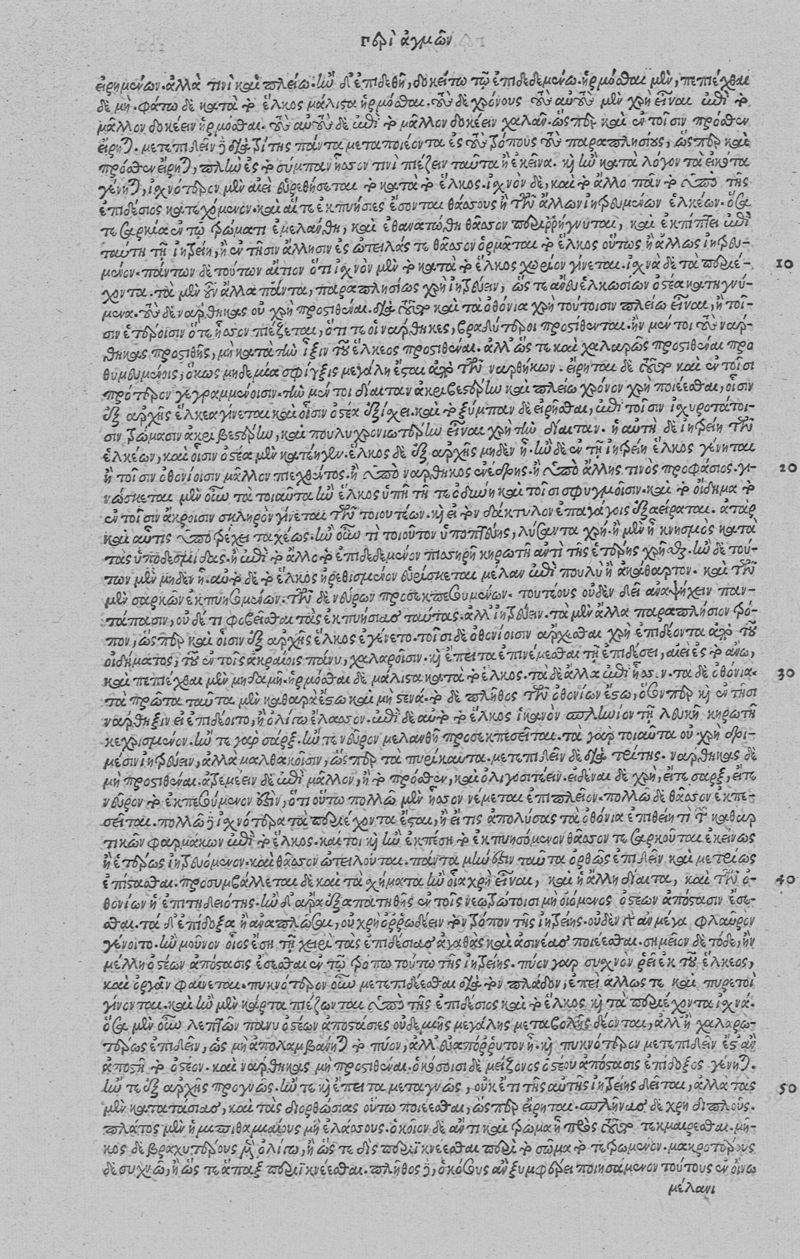 περὶ ἀγμῶν
εἰρημένων. ἀλλὰ τινὶ καὶ πλείω. ἢν δ' ἐπιδεθῆ, δοκείτω τῷ ἐπιδεδεμένω. ἡρμόσθαι μὲν, πεπιέχθαι
δὲ μή. φάτω δὲ κατὰ τὸ ἕλκος μάλιστα ἡρμόσθαι. τοὺς δὲ χρόνους τοὺς αὐτοὺς μὲν χρὴ εἶναι ἐπὶ τὸ
μᾶλλον δοκέειν ἡρμόσθαι. τοὺς αὐτοὺς δὲ ἐπὶ τὸ μᾶλλον δοκέειν χαλᾶν. ὥσπερ καὶ ἐν τοῖσιν πρόσθεν
εἴρηται. μετεπιδεῖν δὲ διὰ τρίτης πάντα μεταποιέοντα ἐς τοὺς τρόπους τοὺς παραπλησίους, ὥσπερ καὶ
πρόσθεν εἴρηται, πλὴν ἐς τὸ σύμπαν ἧσσον τινὶ πιέζειν ταῦτα ἢ ἐκεῖνα. κἢν κατὰ λόγον τὰ εἰκότα
γένηται, ἰχνότερον μὲν αἰεὶ εὑρεθήσεται τὸ κατὰ τὸ ἕλκος. ἰχνὸν δὲ, καὶ τὸ ἄλλο πᾶν τὸ ὑπὸ τῆς
ἐπιδέσιος κατεχόμενον. καὶ αἵ τε ἐκπυήσιες ἔσονται θάσσους ἢ τῶν ἄλλων ἰητρευμένων ἑλκέων. ὅσα
τε σαρκία ἐν τῷ τρώματι ἐμελάνθη, καὶ ἐθανατώθη θᾶσσον περιρρήγνυται, καὶ ἐκπίπτει ἐπὶ
ταύτη τῆ ἰητρείη, ἢ ἐν τῆσιν ἄλλησιν ἐς ὠτειλάς τε θᾶσσον ὁρμᾶται τὸ ἕλκος οὕτως ἢ ἄλλως ἰητρευ-
μένον. πάντων δὲ τούτων αἴτιον ὅτι ἰχνὸν μὲν τὸ κατὰ τὸ ἕλκος χωρίον γίνεται. ἰχνὰ δὲ τὰ περιέ- 10
χοντα. τὰ μὲν οὖν ἄλλα πάντα, παραπλησίως χρὴ ἰητρεύειν, ὥς τε ἄνευ ἑλκωσίων ὀστέα κατηγνύ-
μενα. τοὺς δὲ νάρθηκας οὐ χρὴ προστιθέναι. διὰ τοῦτο καὶ τὰ ὀθόνια χρὴ τούτοισιν πλείω εἶναι, ἢ τοῖ-
σιν ἑτέροισιν ὅτε ἧσσον πιέζεται, ὅτι τε οἱ νάρθηκες, βραδύτεροι προστίθενται. ἢν μέντοι τοὺς νάρ-
θηκας προστιθῆς, μὴ κατὰ τὴν ἴξιν τοῦ ἕλκεος προστιθέναι. ἀλλ' ὥς τε καὶ χαλαρῶς προστιθέναι προ
θυμευμένοις, ὅκως μηδεμία σφίγξις μεγάλη ἔσται ἀπὸ τῶν ναρθήκων. εἴρηται δὲ τοῦτο καὶ ἐν τοῖσι
πρότερον γεγραμμένοισιν. τὴν μέντοι δίαιταν ἀκριβεστέρην καὶ πλείω χρόνον χρὴ ποιέεσθαι, οἷσιν
ἐξ ἀρχῆς ἕλκεα γίνεται καὶ οἷσιν ὀστέα ἐξίσχει. καὶ τὸ ξύμπαν δὲ εἰρῆσθαι, ἐπὶ τοῖσιν ἰσχυροτάτοι-
σιν τρώμασιν ἀκριβεστέρην, καὶ πουλυχρονιωτέρην εἶναι χρὴ τὴν δίαιταν. ἡ αὐτὴ δὲ ἰητρείη τῶν
ἑλκέων, καὶ οἷσιν ὀστέα μὲν κατέηγεν. ἕλκος δὲ ἐξ ἀρχῆς μηδὲν ἦ. ἢν δὲ ἐν τῆ ἰητρείη ἕλκος γένηται
ἢ τοῖσιν ὀθονίοισιν μᾶλλον πιεχθέντος. ἢ ὑπὸ νάρθηκος ἐνέδρης. ἢ ὑπὸ ἄλλης τινὸς προφάσιος. γι- 20
νώσκεται μὲν οὖν τὰ τοιαῦτα ἢν ἕλκος ὑπῆ τῆ τε ὀδύνη καὶ τοῖσι σφυγμοῖσιν. καὶ τὸ οἴδημα τὸ
ἐν τοῖσιν ἄκροισιν σκληρὸν γίνεται τῶν τοιουτέων. κἢν τὸν δάκτυλον ἐπαγάγοις ἐξαείραται. ἀτὰρ
καὶ αὖτις ὑποτρέχει ταχέως. ἢν οὖν τι τοιοῦτον ὑποπτεύης, λύσαντα χρή. ἢν μὲν ἦ κνησμὸς κατὰ
τὰς ὑποδεσμίδας. ἢ ἐπὶ τὸ ἄλλο τὸ ἐπιδεδεμένον πισσηρῆ κηρωτῆ ἀντὶ τῆς ἑτέρης χρῆσθαι. ἢν δὲ τού-
των μὲν μηδὲν ἦ. αὐτὸ δὲ τὸ ἕλκος ἠρεθισμένον εὑρίσκεται μέλαν ἐπὶ πουλὺ ἢ ἀκάθαρτον. καὶ τῶν
μὲν σαρκῶν ἐκπυησομένων. τῶν δὲ νεύρων προσεκπεσουμένων. τουτέους οὐδὲν δεῖ ἀναψύχειν παν-
τάπασιν, οὐδέ τι φοβεῖσθαι τὰς ἐκπυήσιας ταύτας. ἀλλ' ἰητρεύειν. τὰ μὲν ἄλλα παραπλήσιον τρό-
πον, ὥσπερ καὶ οἷσιν ἐξ ἀρχῆς ἕλκος ἐγένετο. τοῖσι δὲ ὀθονίοισιν ἄρχεσθαι χρὴ ἐπιδέοντα ἀπὸ τοῦ
οἰδήματος, τοῦ ἐν τοῖς ἀκραίοις πάνυ, χαλαροῖσιν. κἢ ἔπειτα ἐπινέμεσθαι τῆ ἐπιδέσει, αἰεὶ ἐς τὸ ἄνω,
καὶ πεπιέχθαι μὲν μηδαμῆ. ἡρμόσθαι δὲ μάλιστα κατὰ τὸ ἕλκος. τὰ δὲ ἄλλα ἐπὶ ἧσσον. τὰ δὲ ὀθόνια. 30
τὰ πρῶτα ταῦτα μὲν καθαρὰ ἔστω καὶ μὴ στενά. τὸ δὲ πλῆθος τῶν ὀθονίων ἔστω, ὅσον περ κἢν τῆσι
νάρθηξιν εἰ ἐπιδέοιτο, ἢ ὀλίγω ἔλασσον. ἐπὶ δὲ αὐτὸ τὸ ἕλκος ἱκανὸν σπληνίον τῆ λευκῆ κηρωτῆ
κεχρισμένον. ἤν τε γὰρ σάρξ. ἤν τε νεῦρον μελανθῆ προσεκπεσεῖται. τὰ γὰρ τοιαῦτα οὐ χρὴ δρι-
μέσιν ἰητρεύειν, ἀλλὰ μαλθακοῖσιν, ὥσπερ τὰ πυρίκαυτα. μετεπιδεῖν δὲ διὰ τρίτης. νάρθηκας δὲ
μὴ προστιθέναι. ἀτρεμέειν δὲ ἐπὶ μᾶλλον, ἢ τὸ πρόσθεν, καὶ ὀλιγοσιτέειν. εἰδέναι δὲ χρή, εἴτε σὰρξ, εἴτε
νεῦρον τὸ ἐκπεσούμενόν ἐστιν, ὅτι οὕτω πολλῶ μὲν ἧσσον νέμεται ἐπὶ πλεῖον. πολλῶ δὲ θᾶσσον ἐκπε-
σεῖται. πολλῶ δὲ ἰχνότερα τὰ περιέχοντα ἔσται, ἢ εἴ τις ἀπολύσας τὰ ὀθόνια ἐπιθείη τι τῶν καθαρ
τικῶν φαρμάκων ἐπὶ τὸ ἕλκος. καί τοι κἢν ἐκπέση τὸ ἐκπυησόμενον θᾶσσόν τε σαρκοῦται ἐκείνως
ἢ ἑτέρως ἰητρευόμενον. καὶ θᾶσσον ὠτειλοῦται. πάντα μὴν ἐστὶν ταῦτα ὀρθῶς ἐπιδεῖν καὶ μετρίως
ἐπίστασθαι. προσυμβάλλεται δὲ καὶ τὰ σχήματα ἢν οἷα χρὴ εἶναι, καὶ ἡ ἄλλη δίαιτα, καὶ τῶν ὀ- 40
θονίων ἡ ἐπιτηδειότης. ἢν δ' ἄρα ἐξαπατηθῆς ἐν τοῖς νεοτρώτοισι μὴ οἰόμενος ὀστέων ἀπόστασιν ἔσε-
σθαι. τὰ δ' ἐπίδοξα ἦ ἀναπλῶσαι, οὐ χρὴ ὀρρωδέειν τὸν τρόπον τῆς ἰητρείης. οὐδὲν γὰρ ἂν μέγα φλαῦρον
γένοιτο. ἢν μοῦνον οἷός τ' ἔη τῆ χειρὶ τὰς ἐπιδέσιας ἀγαθὰς καὶ ἀσινέας ποιέεσθαι. σημεῖον δὲ τόδε, ἢν
μέλλη ὀστέων ἀπόστασις ἔσεσθαι ἐν τῷ τρόπω τούτω τῆς ἰητρείης. πύον γὰρ συχνὸν ῥεῖ ἐκ τοῦ ἕλκεος,
καὶ ὀργᾶν φαίνεται. πυκνότερον οὖν μετεπιδεῖσθαι διὰ τὸν πλάδον, ἐπεὶ ἄλλως τε καὶ πυρετοὶ
γίνονται. καὶ ἢν μὲν κάρτα πιέζωνται ὑπὸ τῆς ἐπιδέσιος καὶ τὸ ἕλκος κἢ τὰ περιέχοντα ἰχνά.
ὅσαι μὲν οὖν λεπτῶν πάνυ ὀστέων ἀποστάσιες οὐδεμιῆς μεγάλης μεταβολῆς δέονται, ἀλλ' ἢ χαλαρω-
τέρως ἐπιδεῖν, ὡς μὴ ἀπολαμβάνηται τὸ πύον, ἀλλ' εὐαπόρρυτον ἦ. κἢ πυκνότερον μετεπιδεῖν ἐς ἂν
ἀποστῆ τὸ ὀστέον. καὶ νάρθηκας μὴ προστιθέναι. ὁκόσοισι δὲ μείζονος ὀστέου ἀπόστασις ἐπίδοξος γένηται.
ἤν τε ἐξ ἀρχῆς προγνῶς. ἤν τε κἢ ἔπειτα μεταγνῶς, οὐκ ἔτι τῆς αὐτῆς ἰητρείης δεῖται, ἀλλὰ τὰς 50
μὲν κατατάσιας, καὶ τὰς διορθώσιας οὕτω ποιέεσθαι, ὥσπερ εἴρηται. σπλῆνας δὲ χρὴ διπλοῦς.
πλάτος μὲν ἡμισπιθαμαίους μὴ ἐλάσσους. ὁκοῖον δὲ ἄν τι καὶ τρῶμα ἦ πρὸς τοῦτο τεκμαίρεσθαι. μῆ-
κος δὲ βραχυτέρους μὲν ὀλίγω, ἢ ὥς τε δὶς περιικνέεσθαι περὶ τὸ σῶμα τὸ τετρωμένον. μακροτέρους
δὲ συχνῶ, ἢ ὥς τε ἅπαξ περιικνέεσθαι. πλῆθος δὲ, ὁκόσους ἂν ξυμφέρει ποιησάμενον τούτους ἐν οἴνω
μέλανι